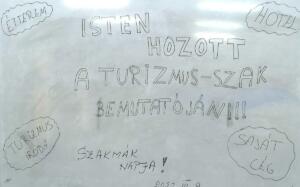 ÉTTEREM
HOTEL
ISTEN
HOZOTT
A TURIZMUS-SZAK
BEMUTATÓJÁN!!!
TURIZMUS
IRODA
SZAKMÁK
NAPJA!
SAJÁT
CÉG